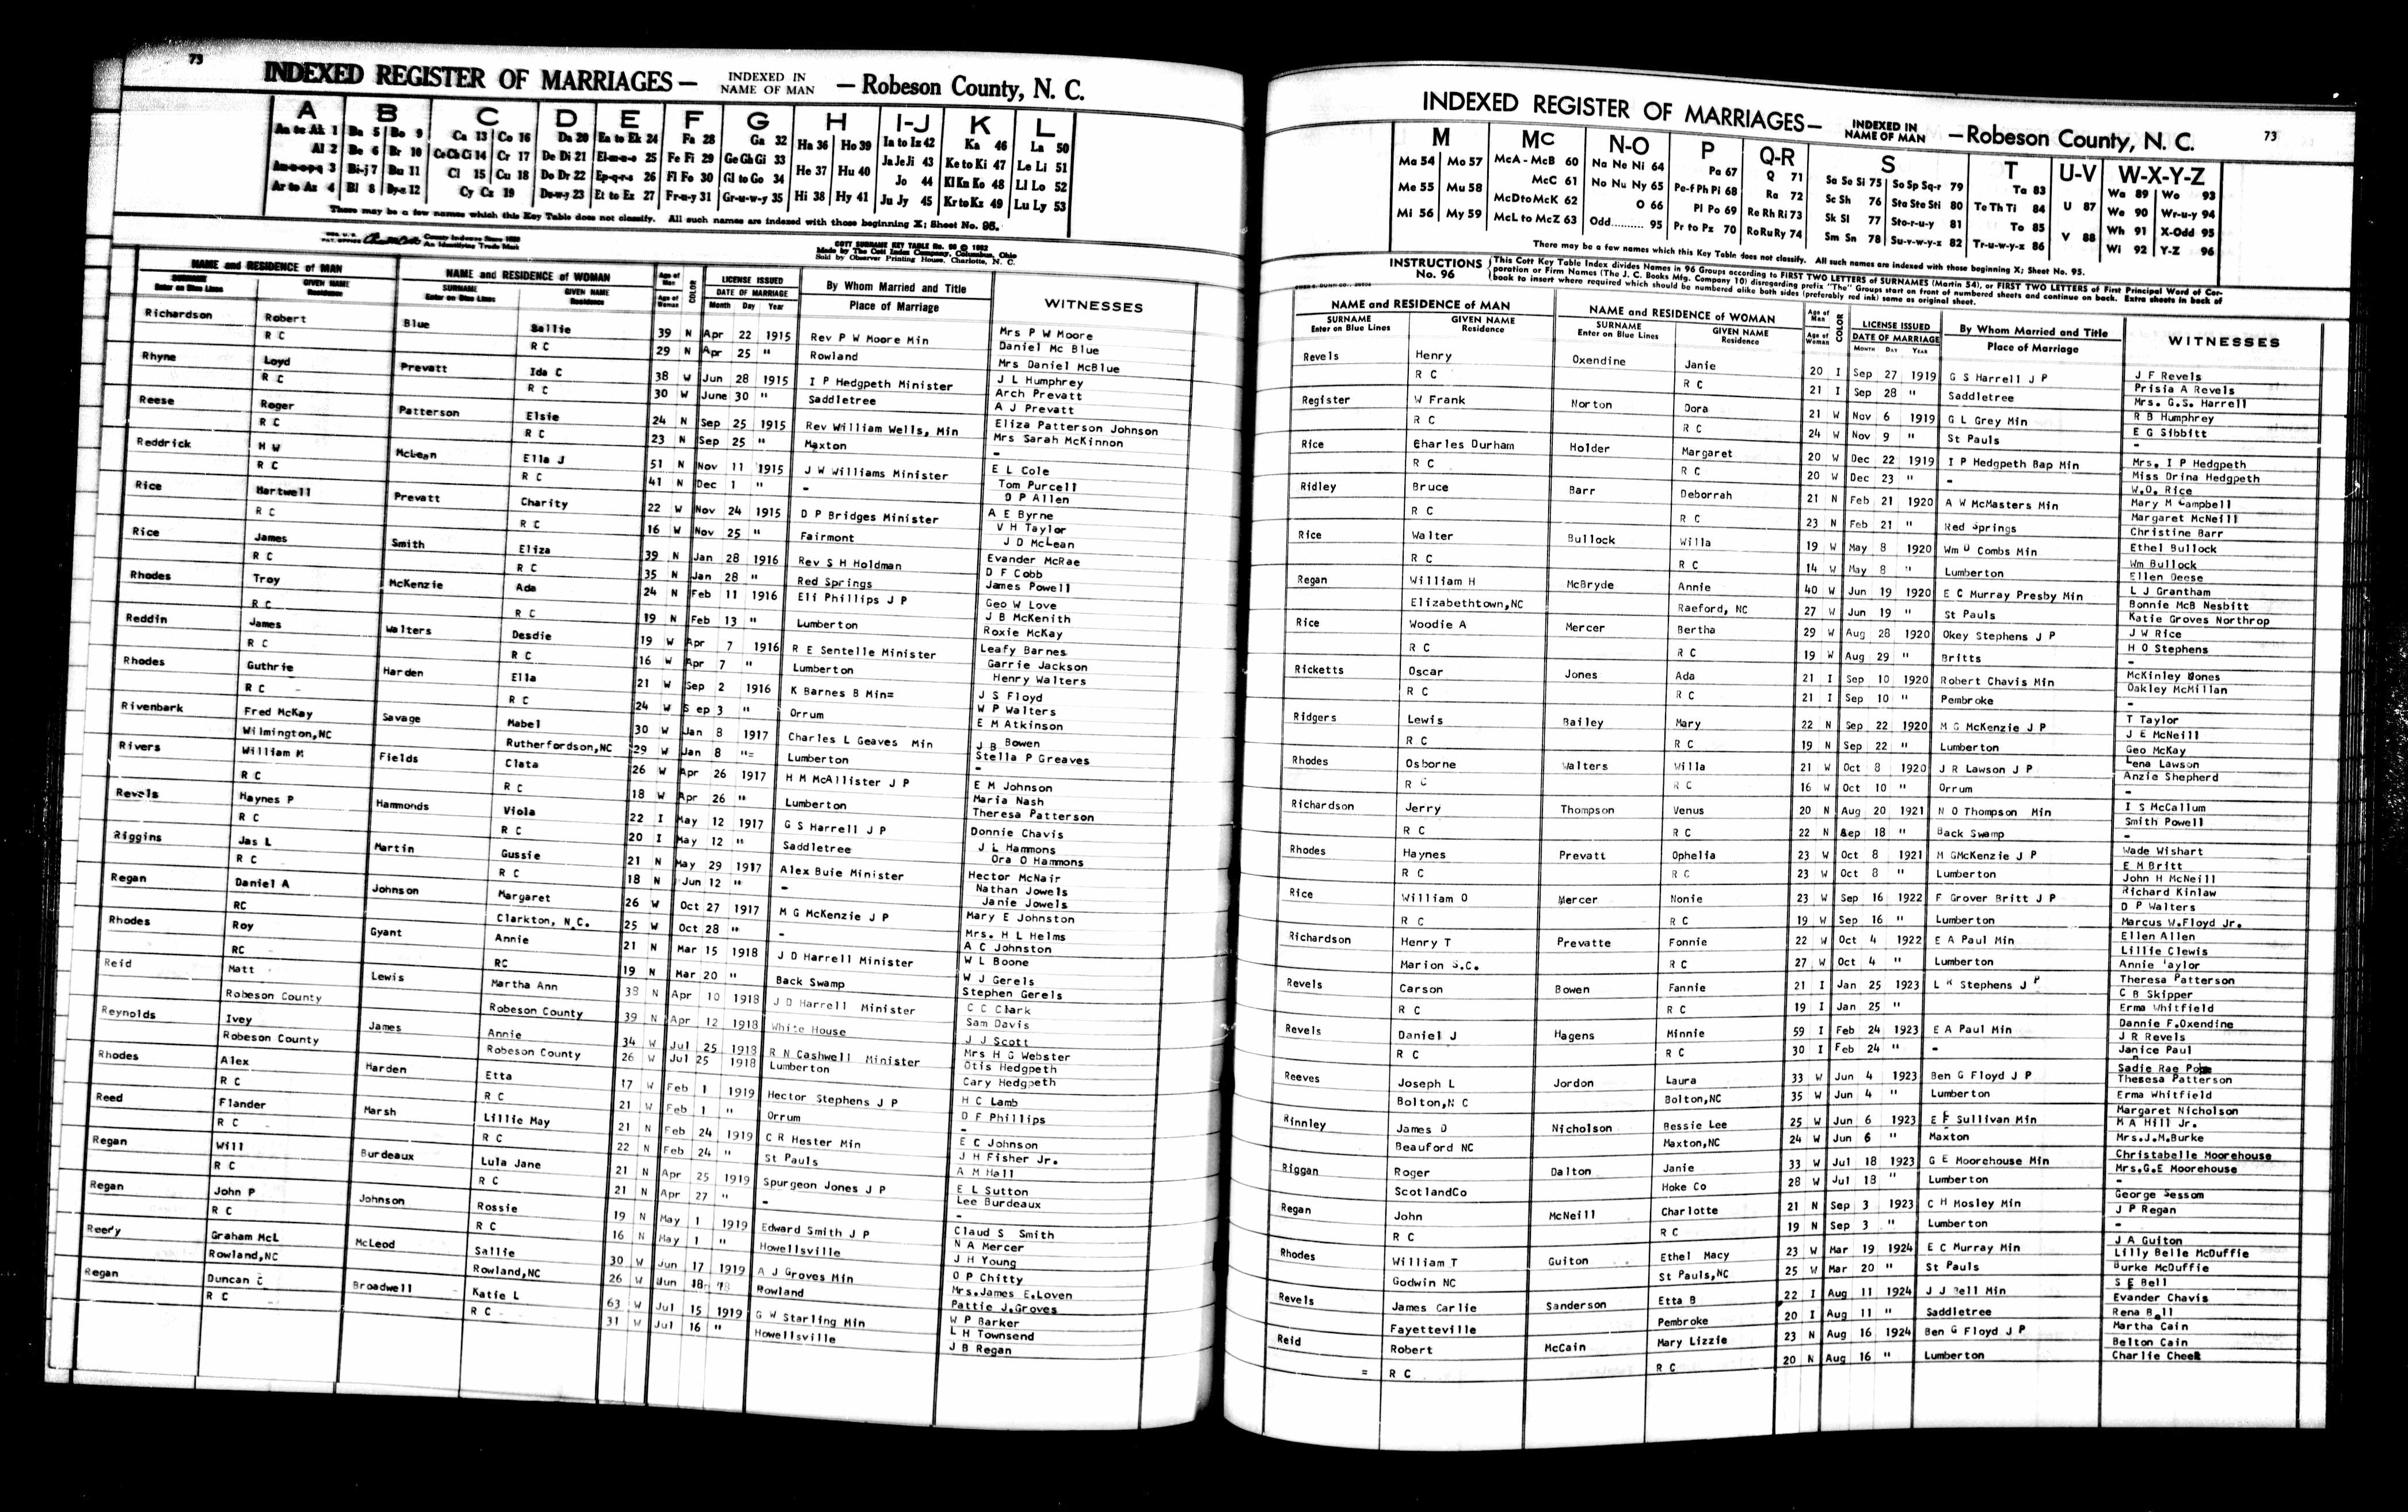 73
INDEXED REGISTER OF MARRIAGES— INDEXED IN NAME OF MAN —Robeson County, N. C.
A B C D E F G H I-J K L
Aa to Ak 1 Ba 5 Bo 9 Ca 13 Co 16 Da 20 Ea to Ek 24 Fa 28 Ga 32 Ha 36 Ho 39 Ia to Iz 42 Ka 46 La 50
Al 2 Be 6 Br 10 Ce Ch Ci 14 Cr 17 De Di 21 El-m-n-o 25 Fe Fi 29 Ge Gh Gi 33 He 37 Hu 40 Ja Je Ji 43 Ke to Ki 47 Le Li 51
Am-n-o-p-q 3 Bi-j 7 Bu 11 Cl 15 Cu 18 Do Dr 22 Ep-q-r-s 26 Fl Fo 30 Gl to Go 34 Hi 38 Hy 41 Jo 44 Kl Kn Ko 48 Ll Lo 52
Ar to Az 4 Bl 8 By-z 12 Cy Cz 19 Du-w-y 23 Et to Ez 27 Fr-u-y 31 Gr-u-w-y 35 Ju Jy 45 Kr to Kz 49 Lu Ly 53
There may be a few names which this Key Table does not classify. All such names are indexed with those beginning X; Sheet No. 95.
COTT SURNAME KEY TABLE No. 96 © 1952
Made by The Cott Index Company, Columbus, Ohio
Sold by Observer Printing House, Charlotte, N. C.
NAME and RESIDENCE of MAN NAME and RESIDENCE of WOMAN Age of Man COLOR LICENSE ISSUED By Whom Married and Title WITNESSES
SURNAME Enter on Blue Lines GIVEN NAME Residence SURNAME Enter on Blue Lines GIVEN NAME Residence Age of Woman DATE OF MARRIAGE Month Day Year Place of Marriage
Richardson Robert Blue Sallie 39 N Apr 22 1915 Rev P W Moore Min Mrs P W Moore
R C R C 29 N Apr 25 " Rowland Daniel Mc Blue
Mrs Daniel McBlue
Rhyne Loyd Prevatt Ida C 38 W Jun 28 1915 I P Hedgpeth Minister J L Humphrey
R C R C 30 W June 30 " Saddletree Arch Prevatt
A J Prevatt
Reese Roger Patterson Elsie 24 N Sep 25 1915 Rev William Wells, Min Eliza Patterson Johnson
R C R C 23 N Sep 25 " Maxton Mrs Sarah McKinnon
-
Reddrick H W McLean Ella J 51 N Nov 11 1915 J W Williams Minister E L Cole
R C R C 41 N Dec 1 " - Tom Purcell
D P Allen
Rice Hartwell Prevatt Charity 22 W Nov 24 1915 D P Bridges Minister A E Byrne
R C R C 16 W Nov 25 " Fairmont V H Taylor
J D McLean
Rice James Smith Eliza 39 N Jan 28 1916 Rev S H Holdman Evander McRae
R C R C 35 N Jan 28 " Red Springs D F Cobb
James Powell
Rhodes Troy McKenzie Ada 24 N Feb 11 1916 Eli Phillips J P Geo W Love
R C R C 19 N Feb 13 " Lumberton J B McKenith
Roxie McKay
Reddin James Walters Desdie 19 W Apr 7 1916 R E Sentelle Minister Leafy Barnes
R C R C 16 W Apr 7 " Lumberton Garrie Jackson
Henry Walters
Rhodes Guthrie Harden Ella 21 W Sep 2 1916 K Barnes B Min= J S Floyd
R C - R C 24 W S ep 3 " Orrum W P Walters
E M Atkinson
Rivenbark Fred McKay Savage Mabel 30 W Jan 8 1917 Charles L Geaves Min J B Bowen
Wilmington,NC Rutherfordson,NC 29 W Jan 8 "= Lumberton Stella P Greaves
-
Rivers William M Fields Clata 26 W Apr 26 1917 H M McAllister J P E M Johnson
R C R C 18 W Apr 26 " Lumberton Maria Nash
Theresa Patterson
Revels Haynes P Hammonds Viola 22 I May 12 1917 G S Harrell J P Donnie Chavis
R C R C 20 I May 12 " Saddletree J L Hammons
Ora O Hammons
Riggins Jas L Martin Gussie 21 N May 29 1917 Alex Buie Minister Hector McNair
R C R C 18 N Jun 12 " - Nathan Jowels
Janie Jowels
Regan Daniel A Johnson Margaret 26 W Oct 27 1917 M G McKenzie J P Mary E Johnston
RC Clarkton, N.C. 25 W Oct 28 " - Mrs. H L Helms
A C Johnston
Rhodes Roy Gyant Annie 21 N Mar 15 1918 J D Harrell Minister W L Boone
RC RC 19 N Mar 20 " Back Swamp W J Gerels
Stephen Gerels
Reid Matt Lewis Martha Ann 38 N Apr 10 1918 J D Harrell Minister C C Clark
Robeson County Robeson County 39 N Apr 12 1918 White House Sam Davis
J J Scott
Reynolds Ivey James Annie 34 W Jul 25 1918 R N Cashwell Minister Mrs H G Webster
Robeson County Robeson County 26 W Jul 25 1918 Lumberton Otis Hedgpeth
Cary Hedgpeth
Rhodes Alex Harden Etta 17 W Feb 1 1919 Hector Stephens J P H C Lamb
R C R C 21 W Feb 1 " Orrum D F Phillips
-
Reed Flander Marsh Lillie May 21 N Feb 24 1919 C R Hester Min E C Johnson
R C R C 22 N Feb 24 " St Pauls J H Fisher Jr.
A M Hall
Regan Will Burdeaux Lula Jane 21 N Apr 25 1919 Spurgeon Jones J P E L Sutton
R C R C 21 N Apr 27 " - Lee Burdeaux
-
Regan John P Johnson Rossie 19 N May 1 1919 Edward Smith J P Claud S Smith
R C R C 16 N May 1 " Howellsville N A Mercer
J H Young
Reedy Graham McL McLeod Sallie 30 W Jun 17 1919 A J Groves Min O P Chitty
Rowland,NC Rowland,NC 26 W Jun 18 Rowland Mrs.James E.Loven
Pattie J.Groves
Regan Duncan C Broadwell Katie L 63 W Jul 15 1919 G W Starling Min W P Barker
R C R C 31 W Jul 16 " Howellsville L H Townsend
J B Regan
INDEXED REGISTER OF MARRIAGES— INDEXED IN NAME OF MAN —Robeson County, N. C. 73
M Mc N-O P Q-R S T U-V W-X-Y-Z
Ma 54 Mo 57 McA - McB 60 Na Ne Ni 64 Pa 67 Q 71 Sa Se Si 75 So Sp Sq-r 79 Ta 83 U 87 Wa 89 Wo 93
Me 55 Mu 58 McC 61 No Nu Ny 65 Pe-f Ph Pi 68 Ra 72 Sc Sh 76 Sta Ste Sti 80 Te Th Ti 84 V 88 We 90 Wr-u-y 94
Mi 56 My 59 McD to McK 62 O 66 Pl Po 69 Re Rh Ri 73 Sk Sl 77 Sto-r-u-y 81 To 85 Wh 91 X-Odd 95
McL to McZ 63 Odd.......... 95 Pr to Pz 70 Ro Ru Ry 74 Sm Sn 78 Su-v-w-y-z 82 Tr-u-w-y-z 86 Wi 92 Y-Z 96
There may be a few names which this Key Table does not classify. All such names are indexed with those beginning X; Sheet No. 95.
INSTRUCTIONS No. 96 This Cott Key Table Index divides Names in 96 Groups according to FIRST TWO LETTERS of SURNAMES (Martin 54), or FIRST TWO LETTERS of First Principal Word of Cor-
poration or Firm Names (The J. C. Books Mfg. Company 10) disregarding prefix "The" Groups start on front of numbered sheets and continue on back. Extra sheets in back of
book to insert where required which should be numbered alike both sides (preferably red ink) same as original sheet.
NAME and RESIDENCE of MAN NAME and RESIDENCE of WOMAN Age of Man COLOR LICENSE ISSUED By Whom Married and Title WITNESSES
SURNAME Enter on Blue Lines GIVEN NAME Residence SURNAME Enter on Blue Lines GIVEN NAME Residence Age of Woman DATE OF MARRIAGE MONTH DAY YEAR Place of Marriage
Revels Henry Oxendine Janie 20 I Sep 27 1919 G S Harrell J P J F Revels
R C R C 21 I Sep 28 " Saddletree Prisia A Revels
Mrs. G.S. Harrell
Register W Frank Norton Dora 21 W Nov 6 1919 G L Grey Min R B Humphrey
R C R C 24 W Nov 9 " St Pauls E G Sibbitt
-
Rice Charles Durham Holder Margaret 20 W Dec 22 1919 I P Hedgpeth Bap Min Mrs. I P Hedgpeth
R C R C 20 W Dec 23 " - Miss Drina Hedgpeth
W.O. Rice
Ridley Bruce Barr Deborrah 21 N Feb 21 1920 A W McMasters Min Mary M Campbell
R C R C 23 N Feb 21 " Red Springs Margaret McNeill
Christine Barr
Rice Walter Bullock Willa 19 W May 8 1920 Wm D Combs Min Ethel Bullock
R C R C 14 W May 8 " Lumberton Wm Bullock
Ellen Deese
Regan William H McBryde Annie 40 W Jun 19 1920 E C Murray Presby Min L J Grantham
Elizabethtown,NC Raeford, NC 27 W Jun 19 " St Pauls Bonnie McB Nesbitt
Katie Groves Northrop
Rice Woodie A Mercer Bertha 29 W Aug 28 1920 Okey Stephens J P J W Rice
R C R C 19 W Aug 29 " Britts H O Stephens
-
Ricketts Oscar Jones Ada 21 I Sep 10 1920 Robert Chavis Min McKinley Jones
R C R C 21 I Sep 10 " Pembroke Oakley McMillan
-
Ridgers Lewis Bailey Mary 22 N Sep 22 1920 M G McKenzie J P T Taylor
R C R C 19 N Sep 22 " Lumberton J E McNeill
Geo McKay
Rhodes Osborne Walters Willa 21 W Oct 8 1920 J R Lawson J P Lena Lawson
R C R C 16 W Oct 10 " Orrum Anzie Shepherd
-
Richardson Jerry Thompson Venus 20 N Aug 20 1921 N O Thompson Min I S McCallum
R C R C 22 N Sep 18 " Back Swamp Smith Powell
-
Rhodes Haynes Prevatt Ophelia 23 W Oct 8 1921 M GMcKenzie J P Wade Wishart
R C R C 23 W Oct 8 " Lumberton E M Britt
John H McNeill
Rice William O Mercer Nonie 23 W Sep 16 1922 F Grover Britt J P Richard Kinlaw
R C R C 19 W Sep 16 " Lumberton D P Walters
Marcus W.Floyd Jr.
Richardson Henry T Prevatte Fonnie 22 W Oct 4 1922 E A Paul Min Ellen Allen
Marion S.C. R C 27 W Oct 4 " Lumberton Lillie Clewis
Annie Taylor
Revels Carson Bowen Fannie 21 I Jan 25 1923 L K Stephens J P Theresa Patterson
R C R C 19 I Jan 25 " C B Skipper
Erma Whitfield
Revels Daniel J Hagens Minnie 59 I Feb 24 1923 E A Paul Min Dannie F.Oxendine
R C R C 30 I Feb 24 " - J R Revels
Janice Paul
Reeves Joseph L Jordon Laura 33 W Jun 4 1923 Ben G Floyd J P Sadie Rae Pope
Bolton,N C Bolton,NC 35 W Jun 4 " Lumberton Theresa Patterson
Erma Whitfield
Rinnley James D Nicholson Bessie Lee 25 W Jun 6 1923 E F Sullivan Min Margaret Nicholson
Beauford NC Maxton,NC 24 W Jun 6 " Maxton M A Hill Jr.
Mrs.J.M.Burke
Riggan Roger Dalton Janie 33 W Jul 18 1923 G E Moorehouse Min Christabelle Moorehouse
ScotlandCo Hoke Co 28 W Jul 18 " Lumberton Mrs.G.E Moorehouse
-
Regan John McNeill Charlotte 21 N Sep 3 1923 C H Mosley Min George Sessom
R C R C 19 N Sep 3 " Lumberton J P Regan
-
Rhodes William T Guiton Ethel Macy 23 W Mar 19 1924 E C Murray Min J A Guiton
Godwin NC St Pauls,NC 25 W Mar 20 " St Pauls Lilly Belle McDuffie
Burke McDuffie
Revels James Carlie Sanderson Etta B 22 I Aug 11 1924 J J Bell Min S E Bell
Fayetteville Pembroke 20 I Aug 11 " Saddletree Evander Chavis
Rena Bell
Reid Robert McCain Mary Lizzie 23 N Aug 16 1924 Ben G Floyd J P Martha Cain
= R C R C 20 N Aug 16 " Lumberton Belton Cain
Charlie Cheek